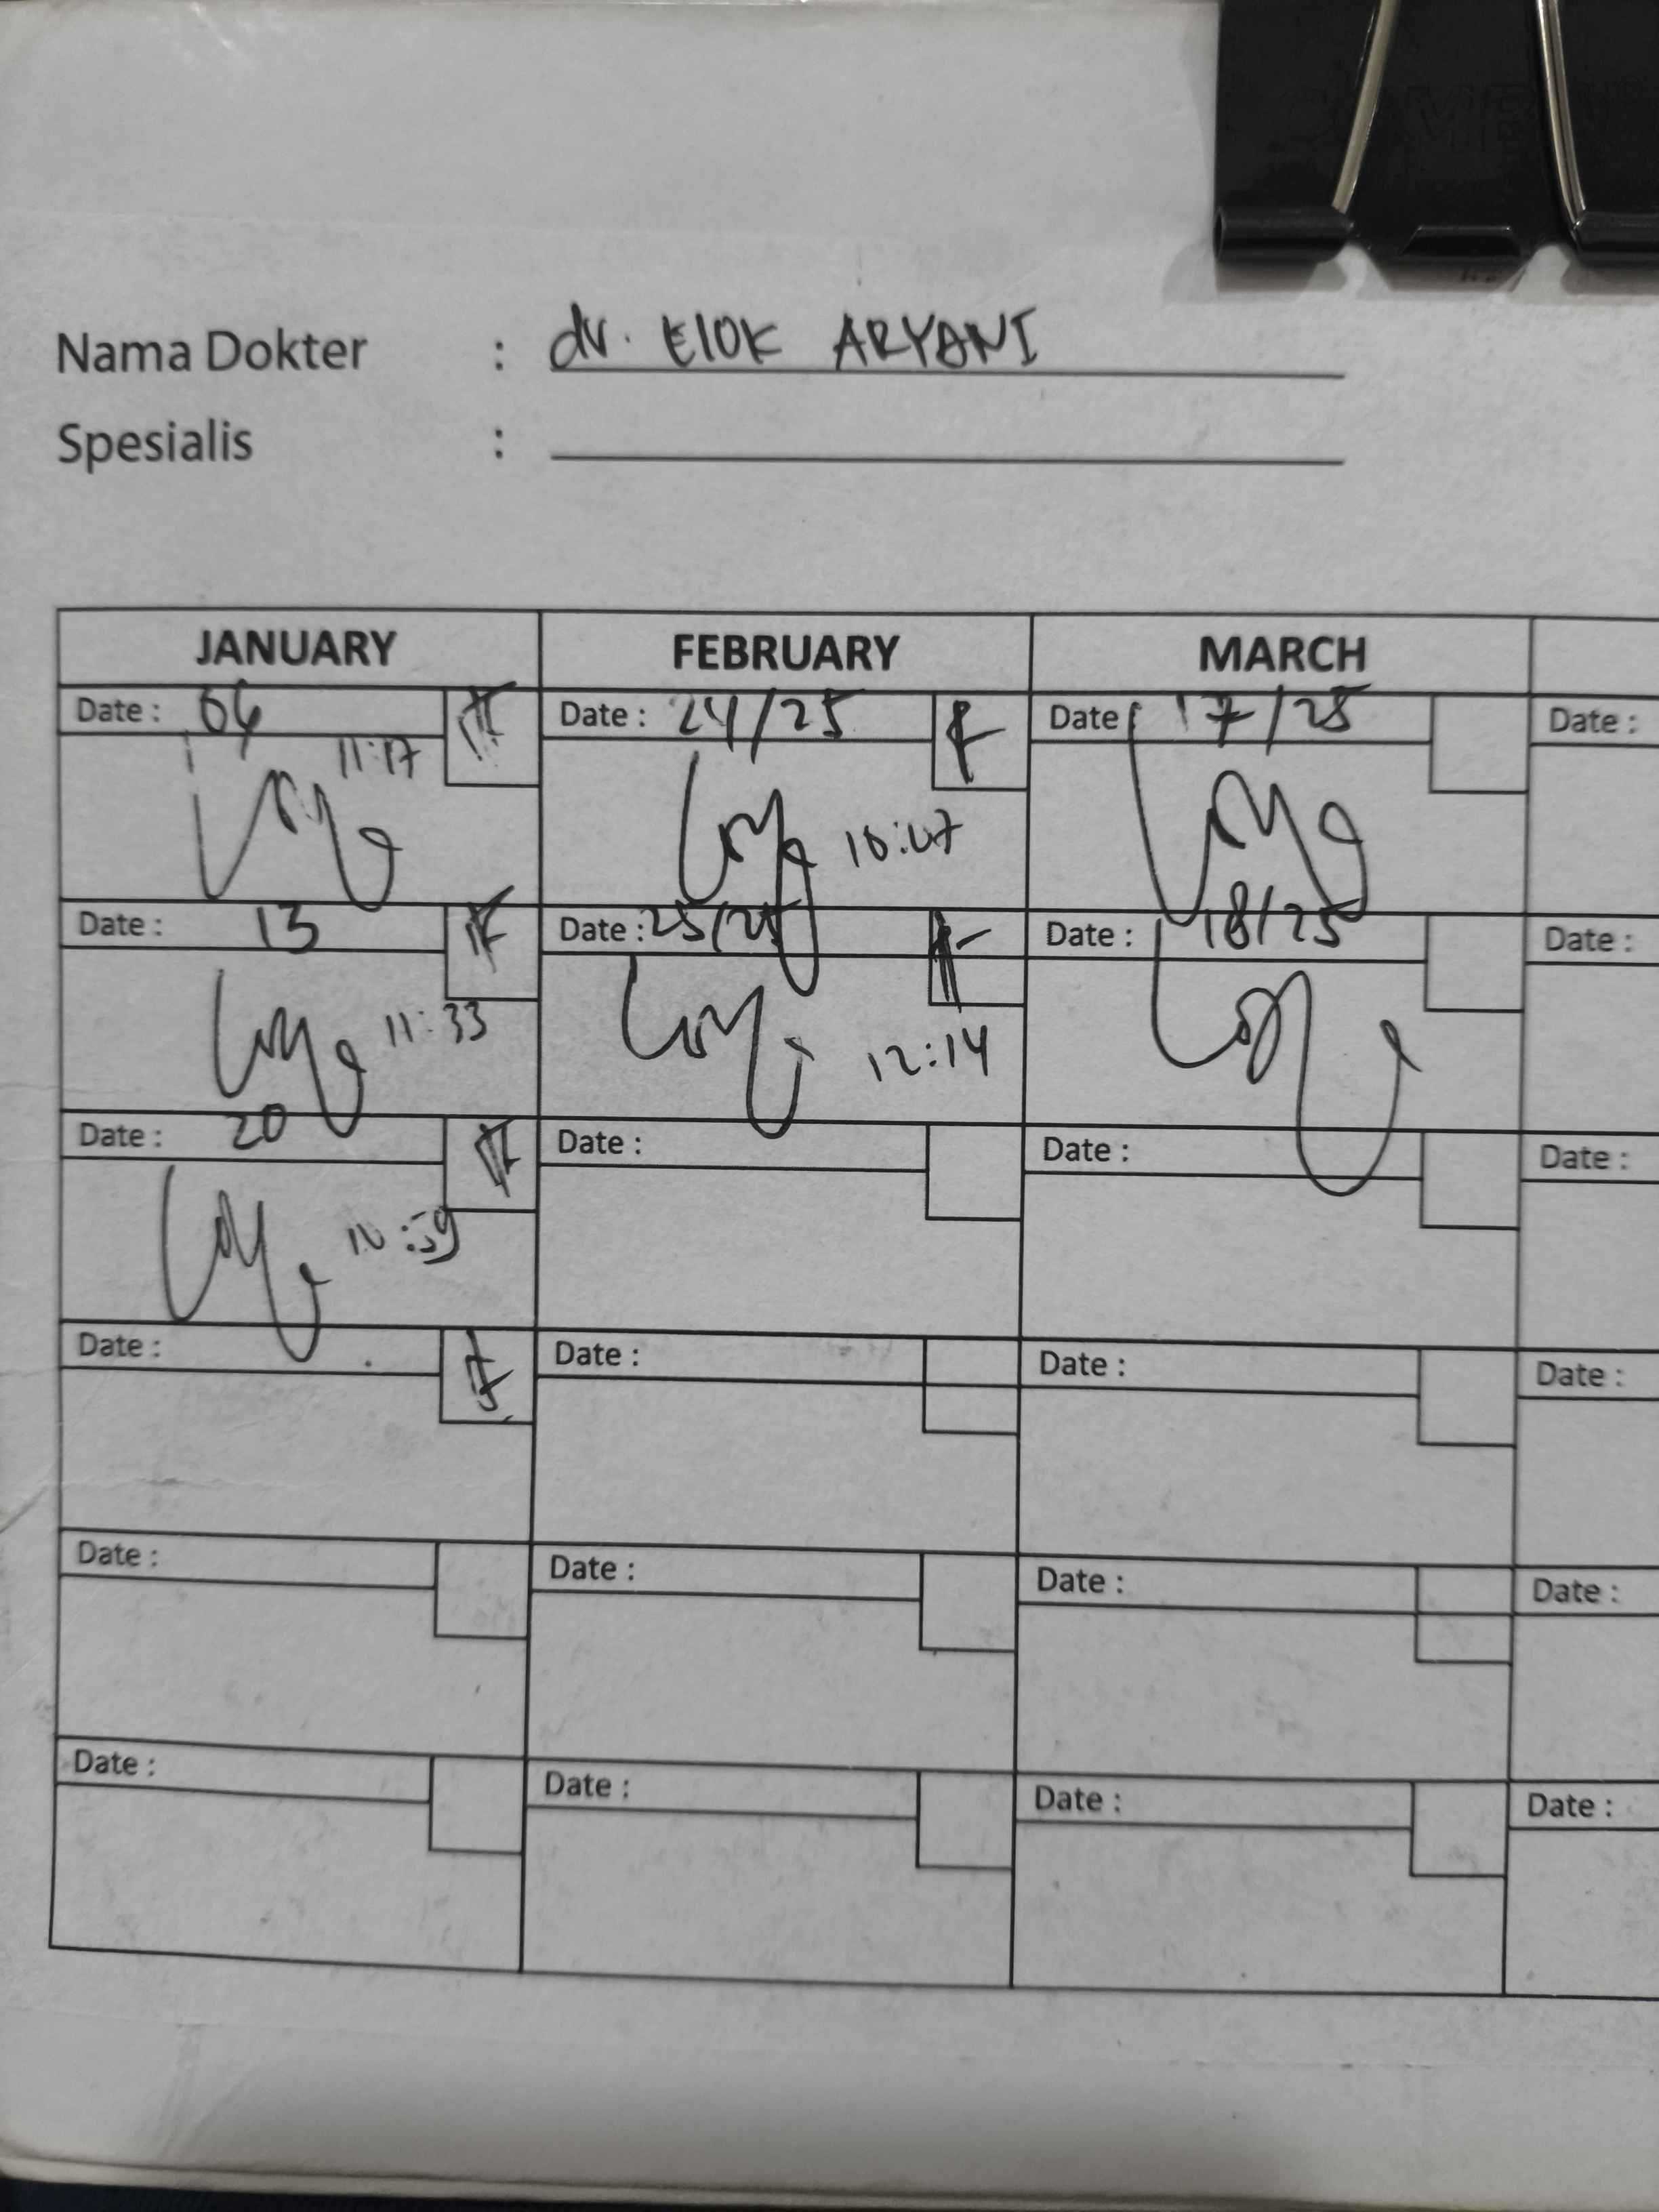 Nama Dokter : dr. ElOK ARYANI
Spesialis :
JANUARY FEBRUARY MARCH
Date : 06 Date : 24/25 Date : 17/25 Date :
11:17
10:47
Date : 13 Date : 25/25 Date : 18/25 Date :
11:33
12:14
Date : 20 Date : Date : Date :
10:59
Date : Date : Date : Date :
Date : Date : Date : Date :
Date : Date : Date : Date :